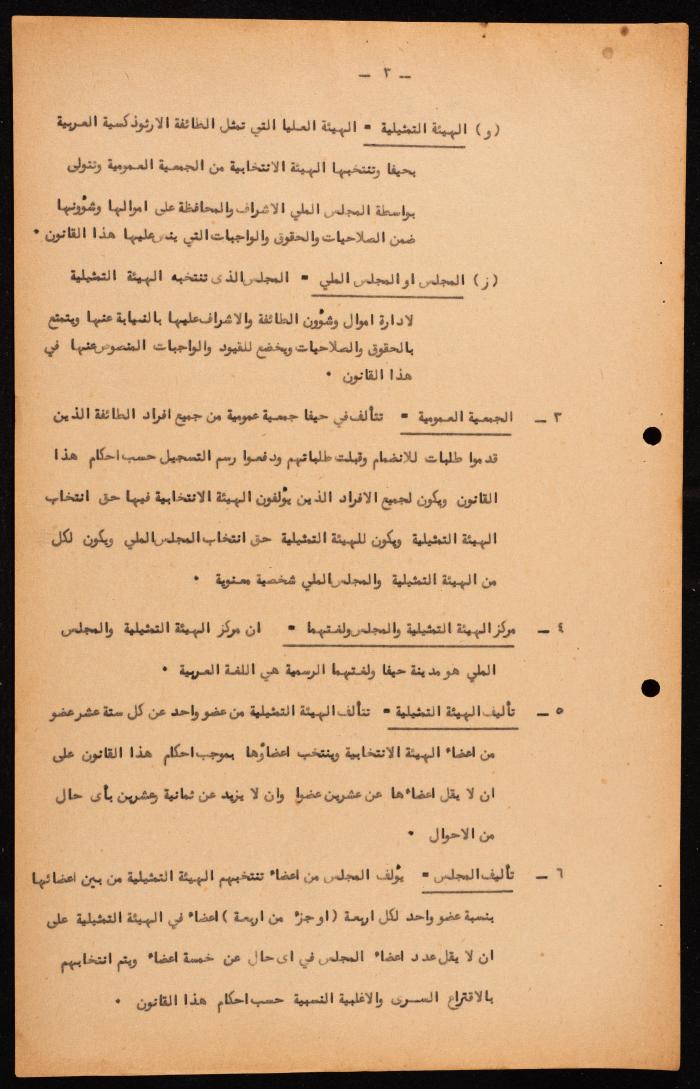 — ٣ —
(و) الهيئة التمثيلية = الهيئة العليا التي تمثل الطائفة الارثوذكسية العربية
بحيفا وتنتخبها الهيئة الانتخابية من الجمعية العمومية وتتولى
بواسطة المجلس الملي الاشراف والمحافظة على اموالها وشؤونها
ضمن الصلاحيات والحقوق والواجبات التي ينص عليها هذا القانون •
(ز) المجلس او المجلس الملي = المجلس الذى تنتخبه الهيئة التمثيلية
لادارة اموال وشؤون الطائفة والاشراف عليها بالنيابة عنها ويتمتع
بالحقوق والصلاحيات ويخضع للقيود والواجبات المنصوص عنها في
هذا القانون •
٣ — الجمعية العمومية = تتألف في حيفا جمعية عمومية من جميع افراد الطائفة الذين
قدموا طلبات للانضمام وقبلت طلباتهم ودفعوا رسم التسجيل حسب احكام هذا
القانون ويكون لجميع الافراد الذين يؤلفون الهيئة الانتخابية فيها حق انتخاب
الهيئة التمثيلية ويكون للهيئة التمثيلية حق انتخاب المجلس الملي ويكون لكل
من الهيئة التمثيلية والمجلس الملي شخصية معنوية •
٤ — مركز الهيئة التمثيلية والمجلس ولغتهما = ان مركز الهيئة التمثيلية والمجلس
الملي هو مدينة حيفا ولغتهما الرسمية هي اللغة العربية •
٥ — تأليف الهيئة التمثيلية = تتألف الهيئة التمثيلية من عضو واحد عن كل ستة عشر عضو
من اعضاء الهيئة الانتخابية وينتخب اعضاؤها بموجب احكام هذا القانون على
ان لا يقل اعضاءها عن عشرين عضوا وان لا يزيد عن ثمانية وعشرين بأى حال
من الاحوال •
٦ — تأليف المجلس = يؤلف المجلس من اعضاء تنتخبهم الهيئة التمثيلية من بين اعضائها
بنسبة عضو واحد لكل اربعة (او جزء من اربعة) اعضاء في الهيئة التمثيلية على
ان لا يقل عدد اعضاء المجلس في اى حال عن خمسة اعضاء ويتم انتخابهم
بالاقتراع السرى والاغلبية النسبية حسب احكام هذا القانون •